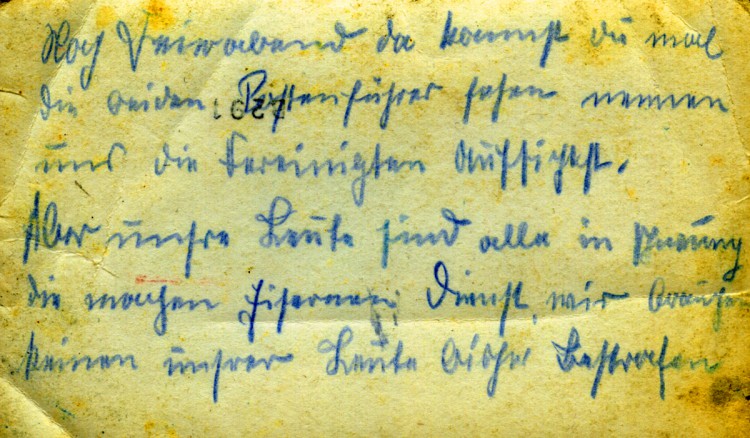 Nach Feierabend da kannst du mal
die beiden Postenführer sehen nennen
uns die Vereinigten Aufsicht.
Aber unsre Leute sind alle in
die machen Eisernen Dienst, wir brauche
keinen unsrer Leute bisher Bestrafen